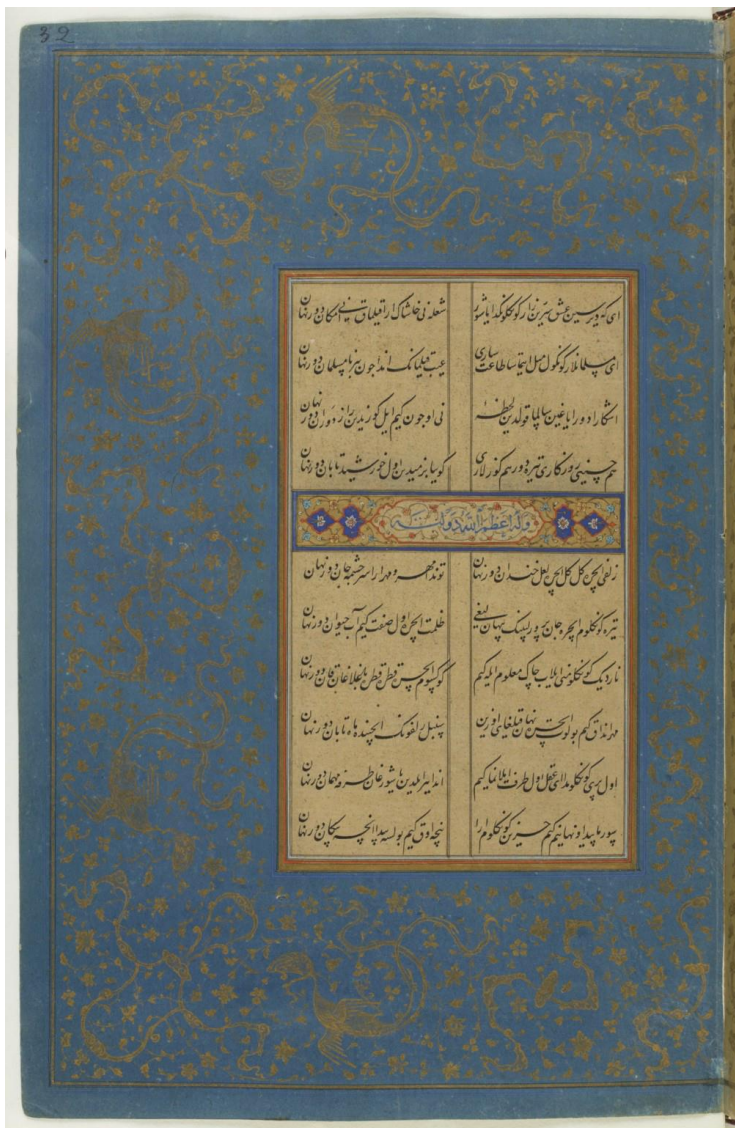 32
ای که دیرسین عشق سرین زار کونکلونکدا یاشور شعله نی خاشاک ارا قیلماق نی امکان دور نهان
ای مسلمانلار کونکول میل ایتماسا طاعت ساری عیب قیلمانک انداجون بیر نامسلمان دور نهان
اشکارا دور ایاغین سالما قولدین لحظه نی اوجون کیم ایل کوزیدین راز دوران دور نهان
هم حسینی روزکاری تیره دور هم کوزلاری کوییا بزمیدین اول خورشید تابان دور نهان
وله اعظم الله دولته
زلفی ایچره کل کل ایچره لعل خندان دور نهان توندا مهر و مهر ارا سرچشمه جان دور نهان
تیره کونکلوم ایچره جان پرور لبینک پنهان لیغی ظلمت ایچره اول صفت کیم آب حیوان دور نهان
ناردیک کونکلومنی ایلاب چاک معلوم ایله کیم کوکسوم ایچره قطره قطره باغلاغان قان دور نهان
مهر انداق کیم بولوت ایچره نهان قیلغای اوزین سنبل زلفونک ایچینده ماه تابان دور نهان
اول پری کونکلومدا ای عقل اول طرف ایلانما کیم اندا ایلدین یاشورغان طرفه مهمان دور نهان
سورما پیدا و نهانیم کیم حزین کونکلوم ارا نیچه اوق کیم بولسه پیدا انچه پیکان دور نهان